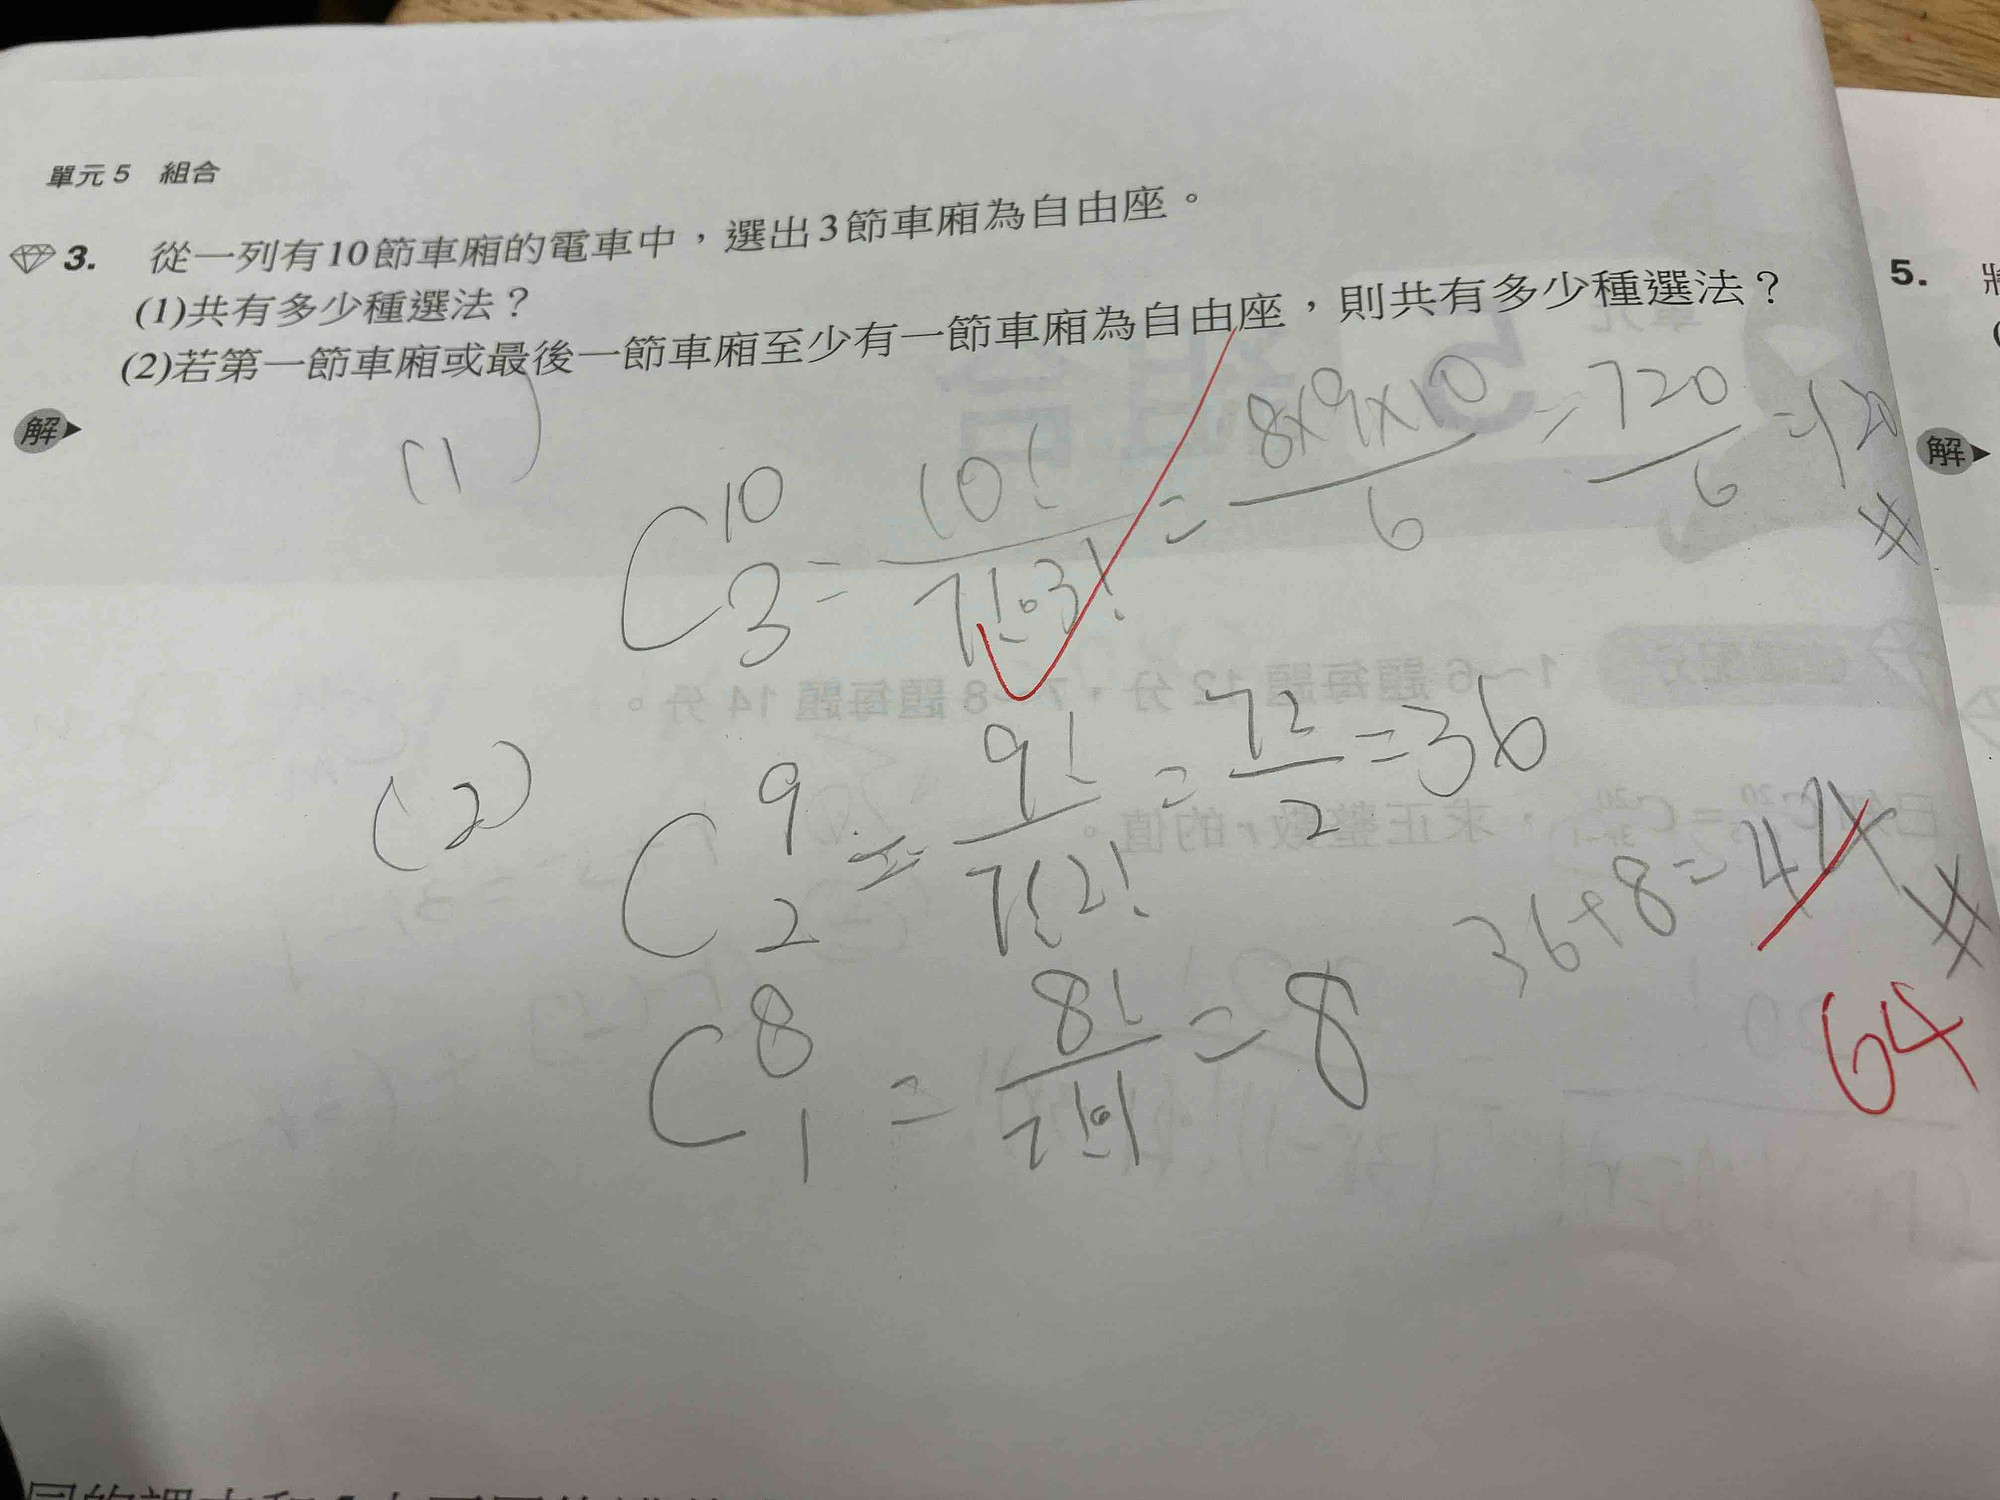 單元 5 組合
3. 從一列有10節車廂的電車中，選出3節車廂為自由座。
(1)共有多少種選法？
(2)若第一節車廂或最後一節車廂至少有一節車廂為自由座，則共有多少種選法？
解
(1) C 10 3 = 10! / 7!·3! = 8×9×10 / 6 = 720 / 6 = 120 #
(2) C 9 2 = 9! / 7!2! = 72 / 2 = 36
36+8=44 #
64
C 8 1 = 8! / 7!·1! = 8
5.
解